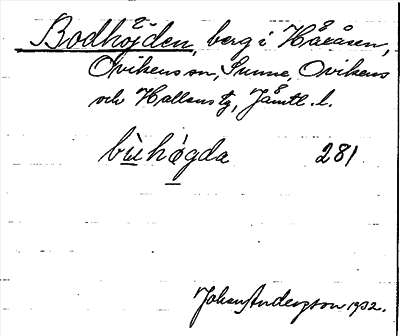 Bodhöjden, berg i Håråsen,
Ovikens sn, Sunne, Ovikens
och Hallens tg, Jämtl. l.
bùhø̀gda 281
Johan Anderzson 1932.